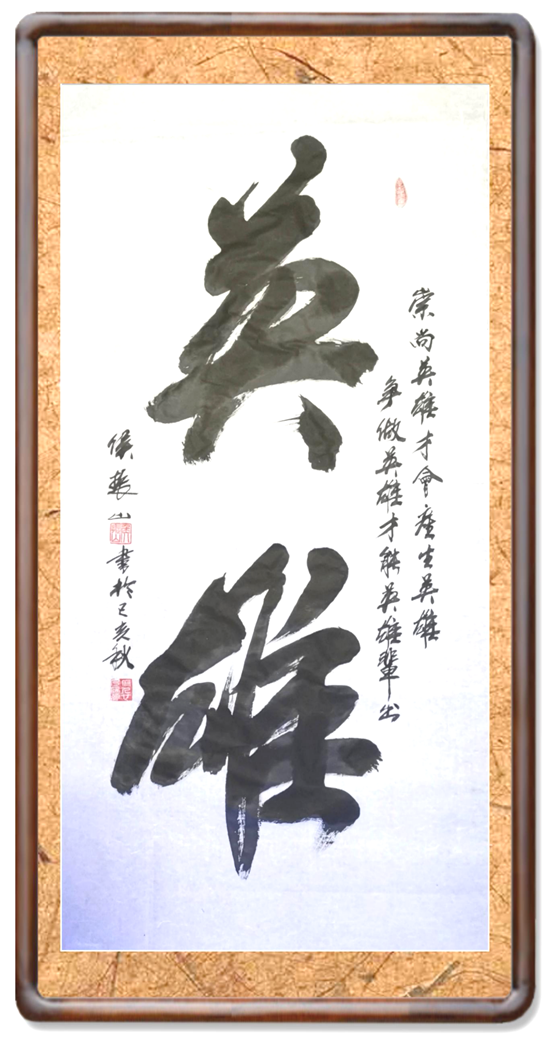 崇尚英雄才會產生英雄
爭做英雄才能英雄輩出
英雄
侯
山
書於己亥秋